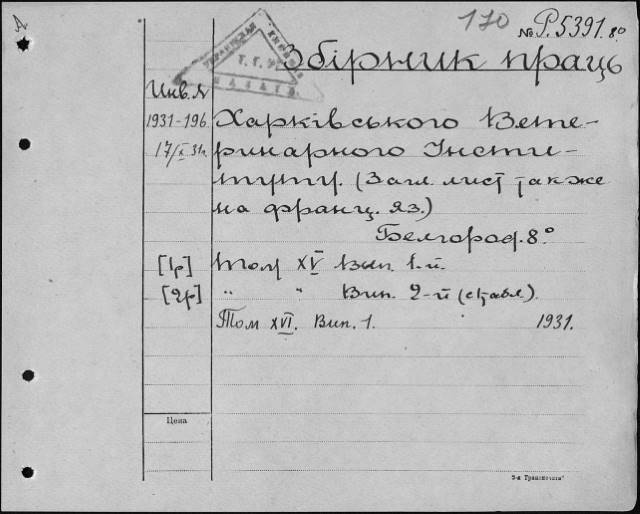 170
№ Р.5391. 8°
УКРАИНСКАЯ
Збірник праць
Инв. №
1931-196
17/X 31г.
Харківського Вете-
ринарного Інсти-
туту. (Загл. лист также
на франц. яз.)
Белгород. 8°
[1р] Том XV Вып. 1-й.
[2р] " " Вип. 2-й (с табл).
Том XVI. Вип. 1. 1931.
Цена